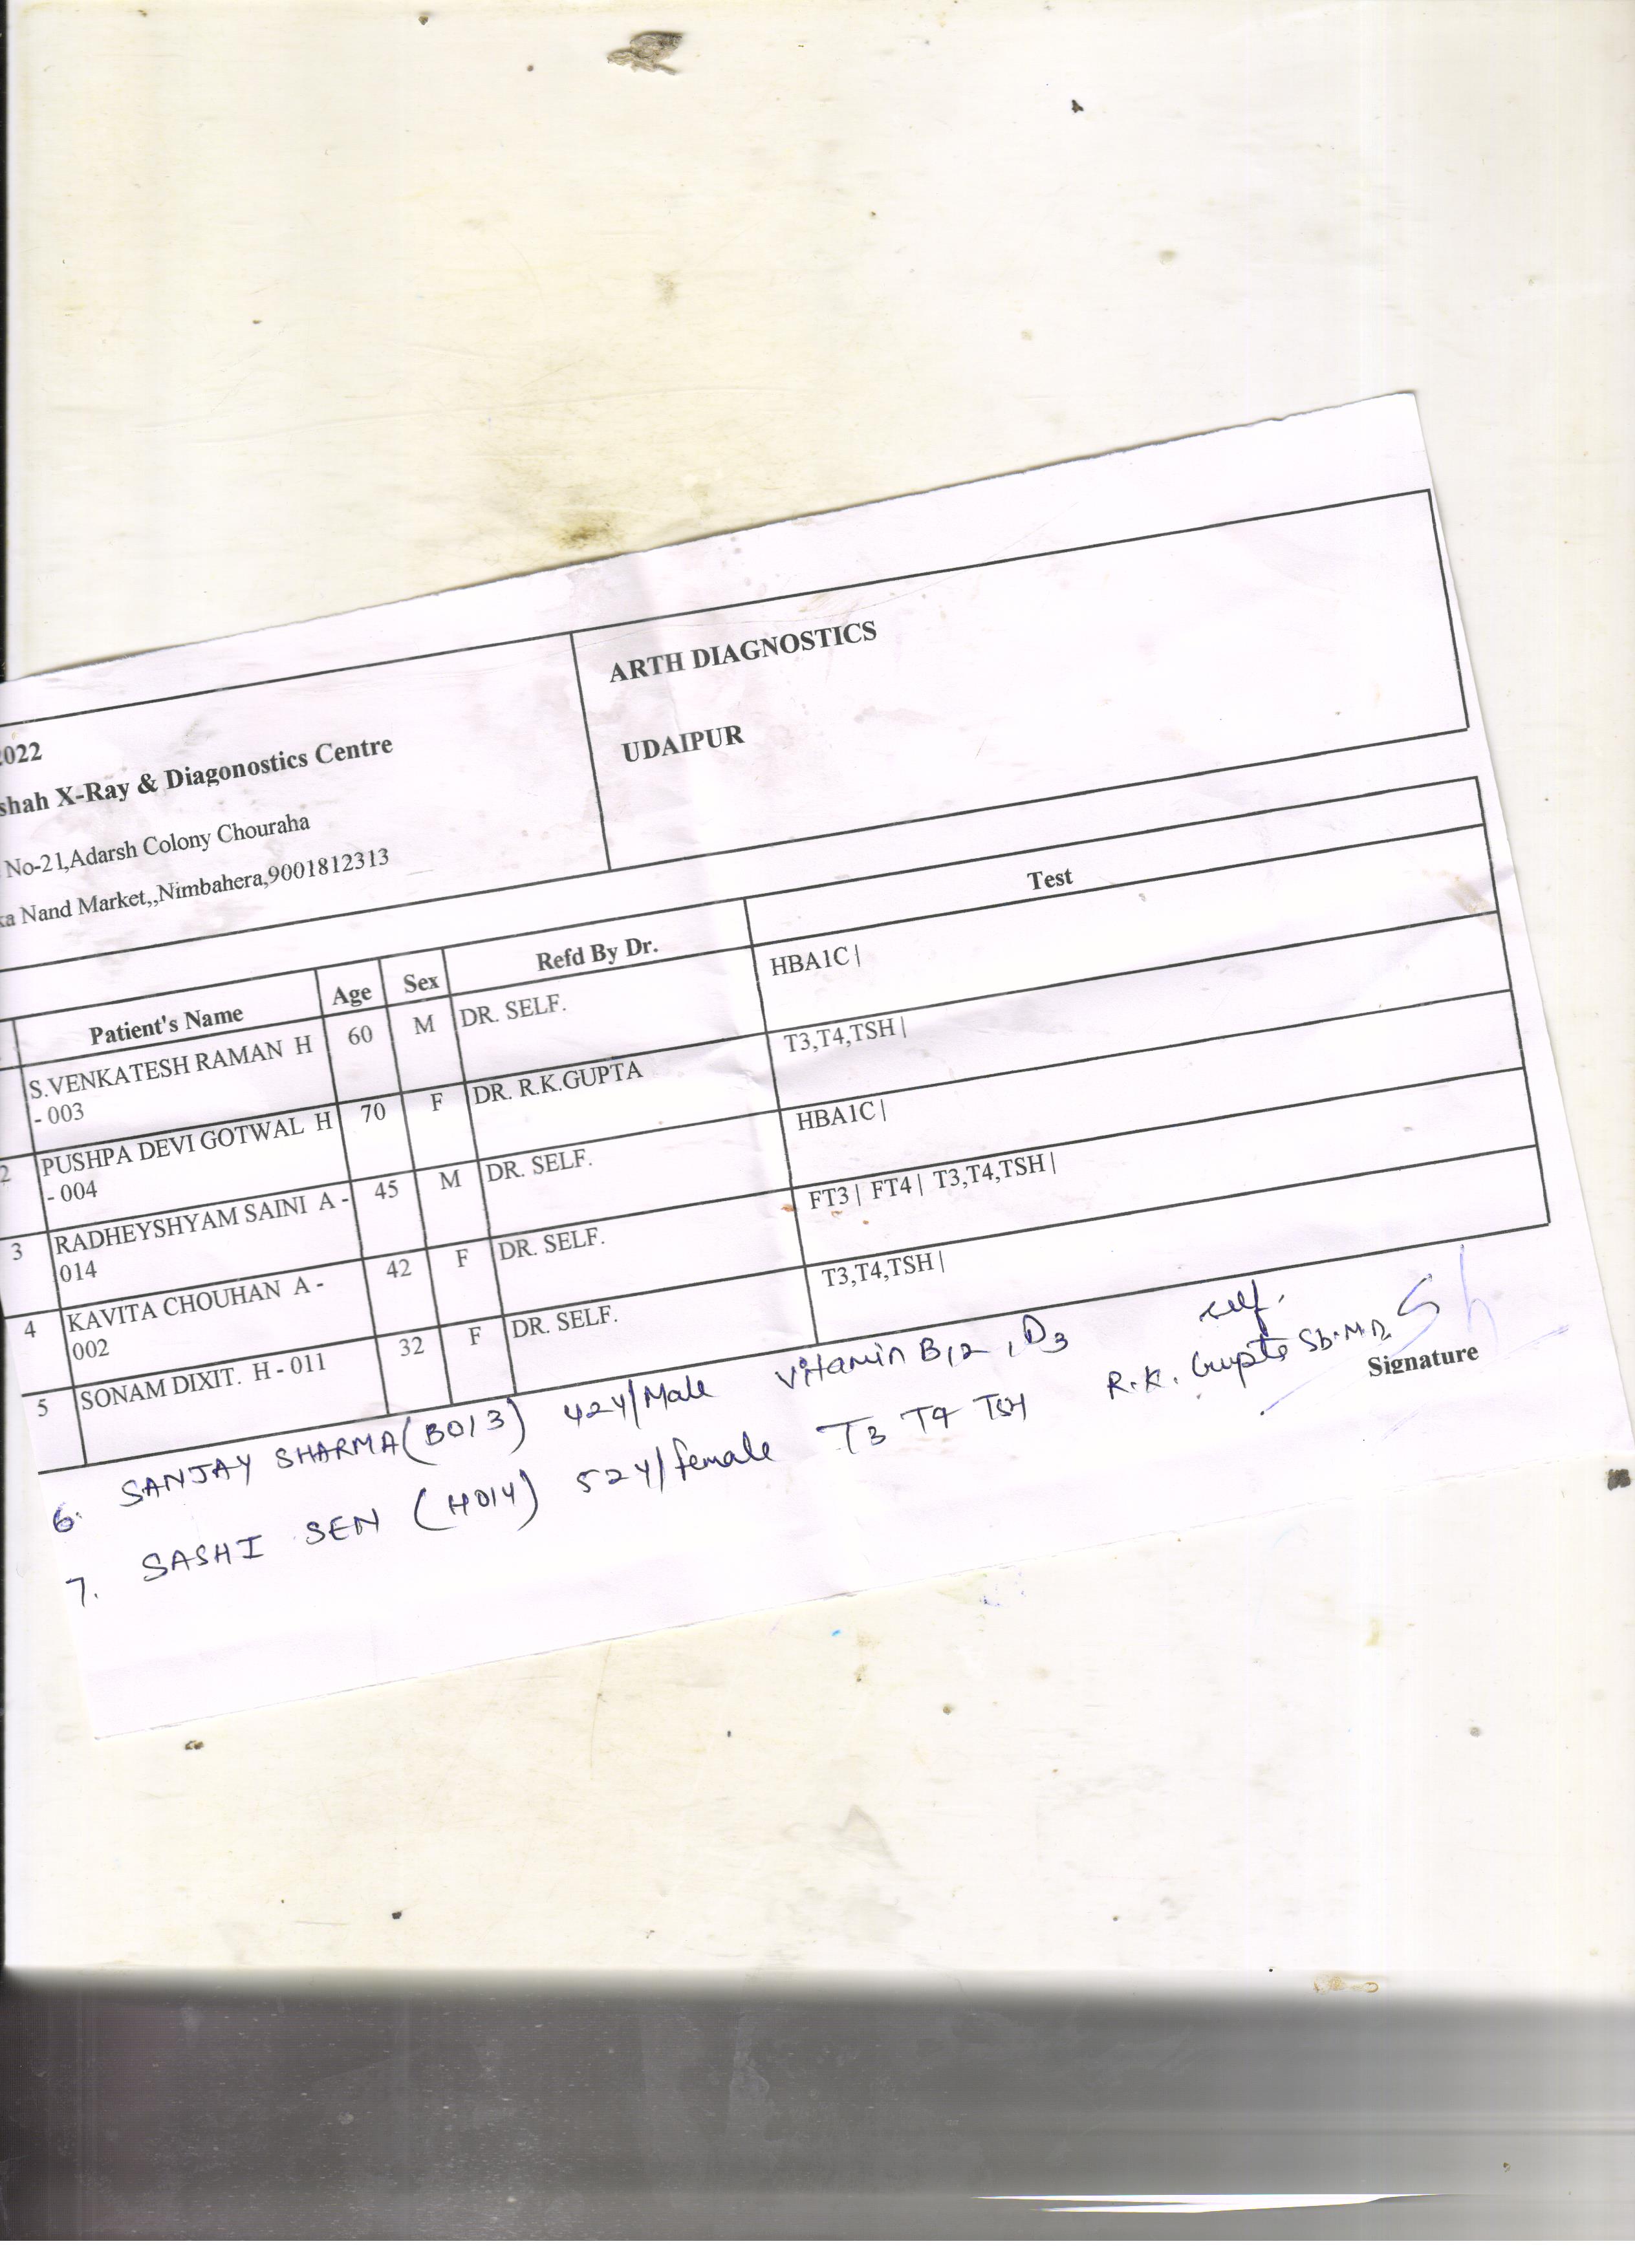 2022
shah X-Ray & Diagonostics Centre
No-21,Adarsh Colony Chouraha
ka Nand Market,,Nimbahera,9001812313
ARTH DIAGNOSTICS
UDAIPUR
Patient's Name Age Sex Refd By Dr. Test
S.VENKATESH RAMAN H 60 M DR. SELF. HBA1C|
- 003
2 PUSHPA DEVI GOTWAL H 70 F DR. R.K.GUPTA T3,T4,TSH|
- 004
3 RADHEYSHYAM SAINI A - 45 M DR. SELF. HBA1C|
014
4 KAVITA CHOUHAN A - 42 F DR. SELF. FT3| FT4| T3,T4,TSH|
002
5 SONAM DIXIT. H - 011 32 F DR. SELF. T3,T4,TSH|
6. SANJAY SHARMA (B013) 42Y/Male Vitamin B12, D3 self.
7. SASHI SEN (H014) 52Y/female T3 T4 TSH R.K. Gupta Sb.M.D.
Signature